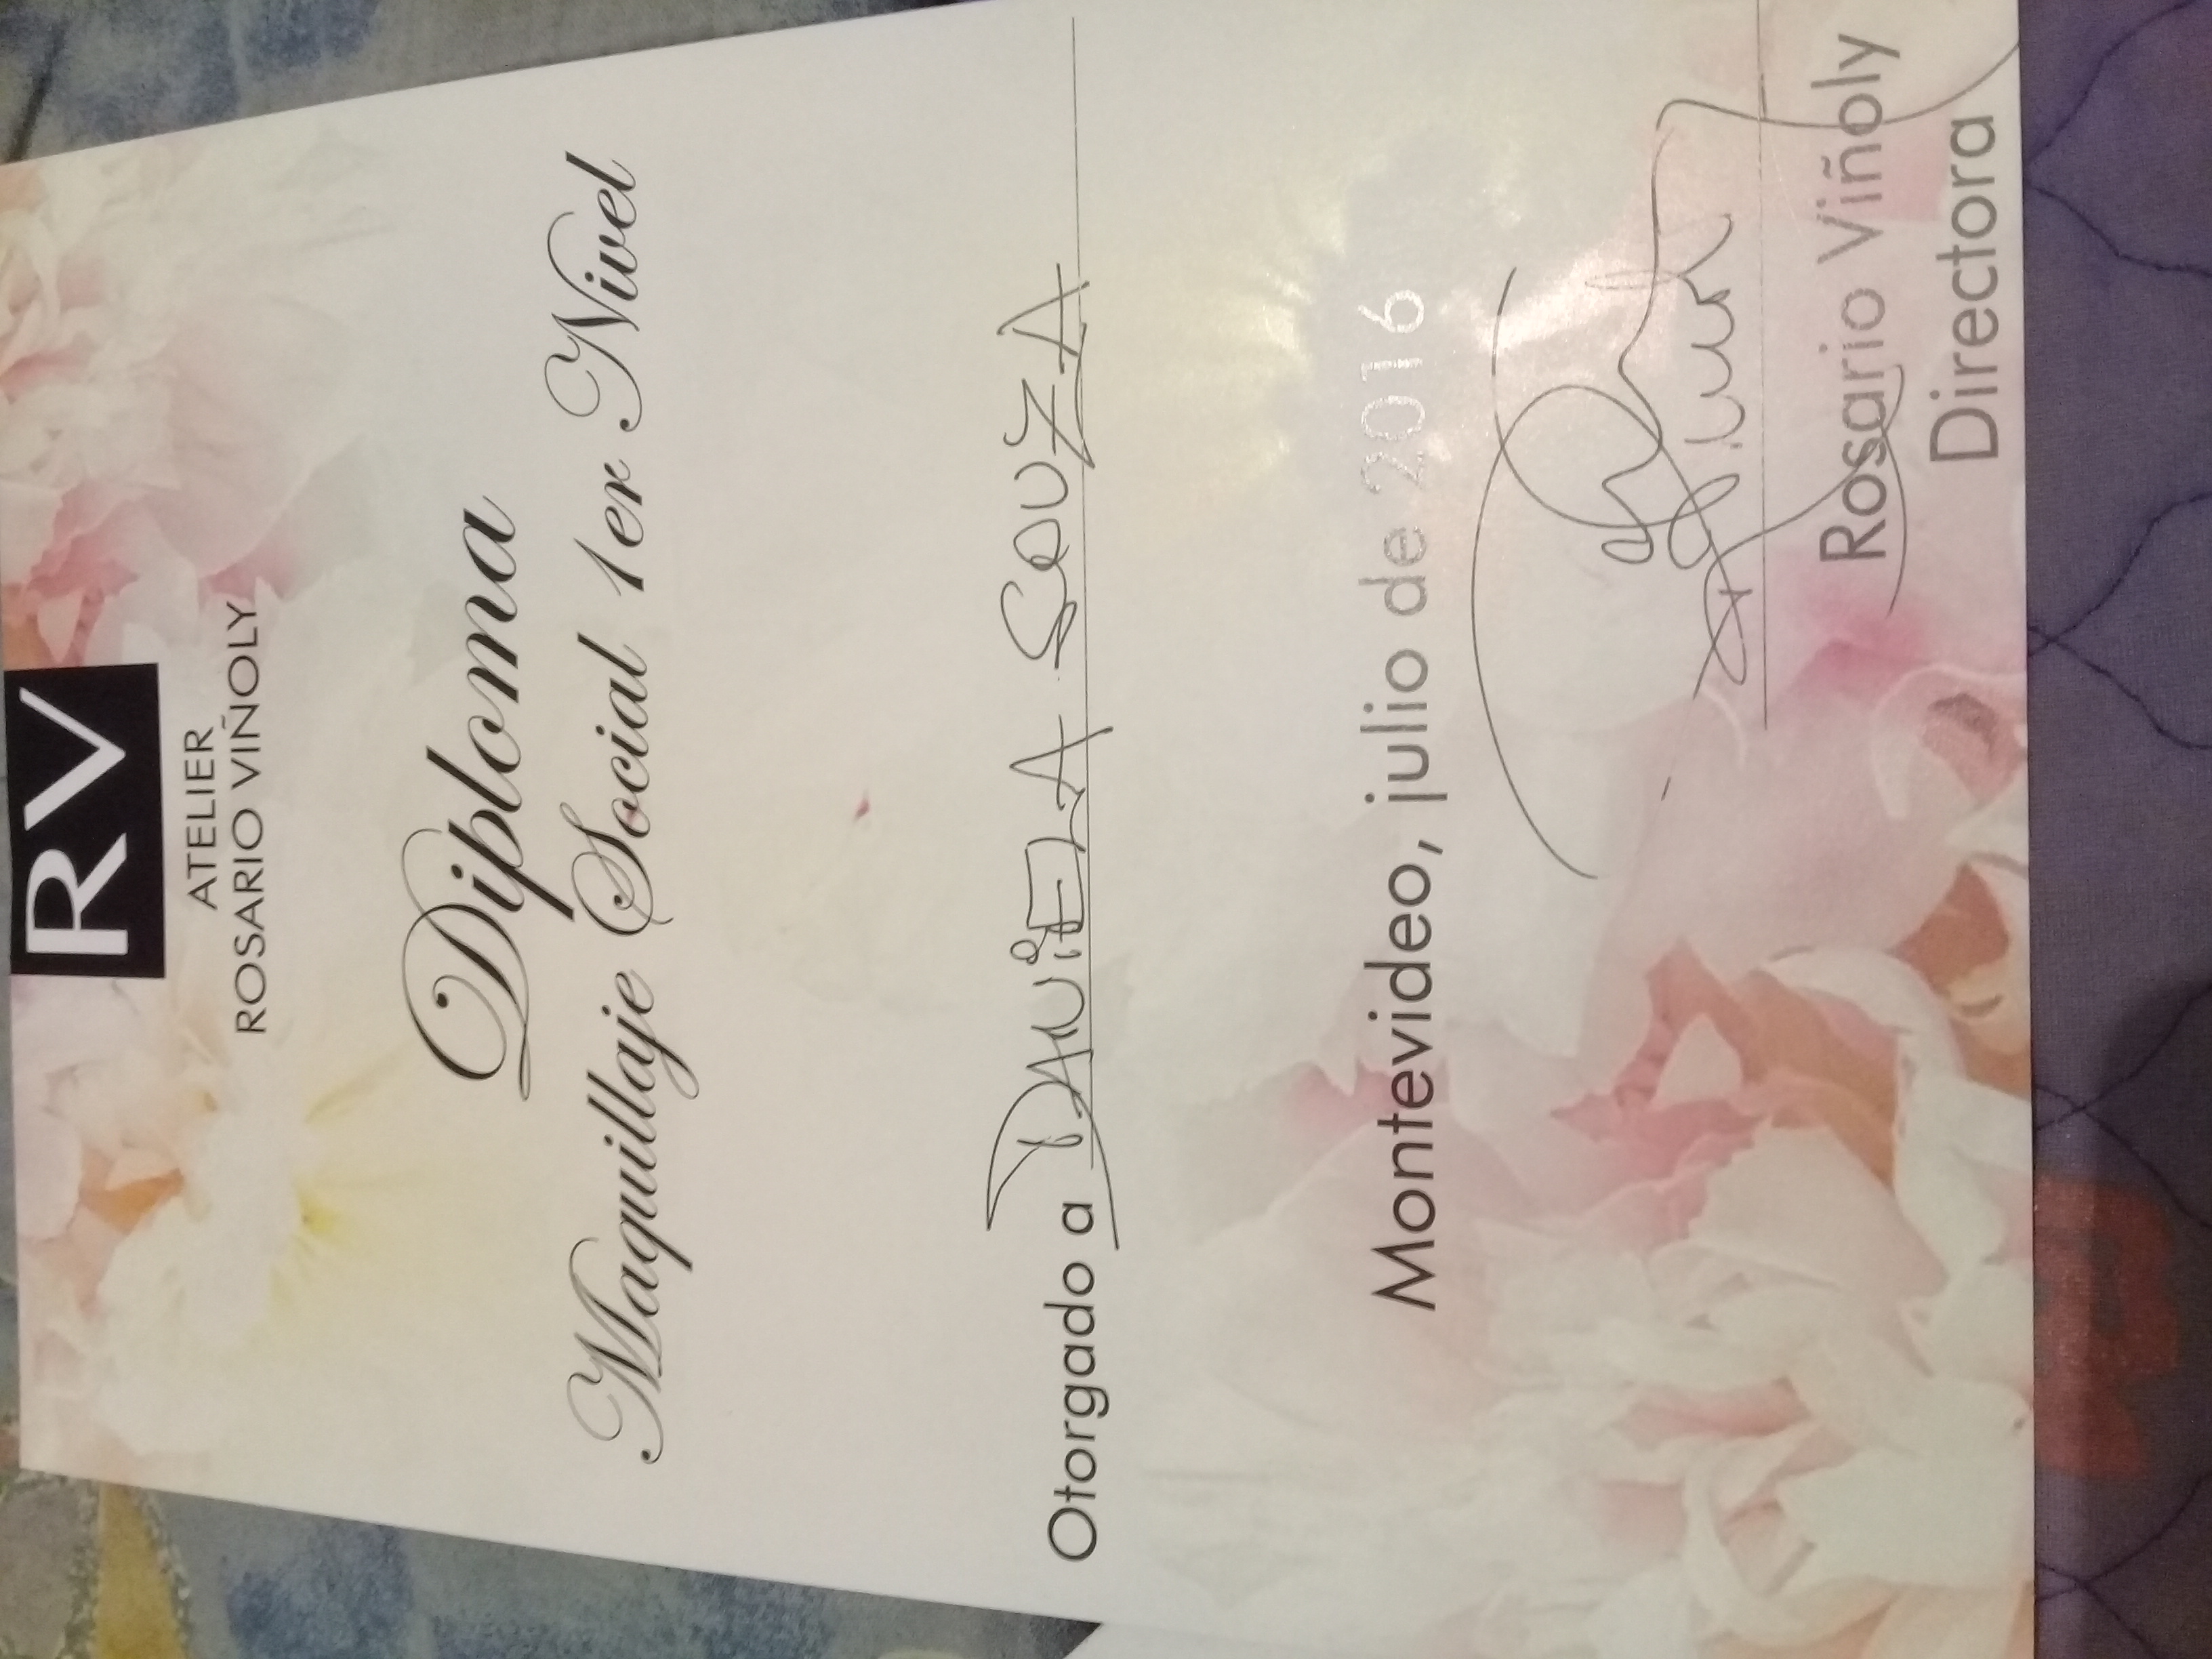 RV
ATELIER
ROSARIO VIÑOLY
Diploma
Maquillaje Social 1er Nivel
Otorgado a DANiELA SOUZA
Montevideo, julio de 2016
Rosario Viñoly
Directora